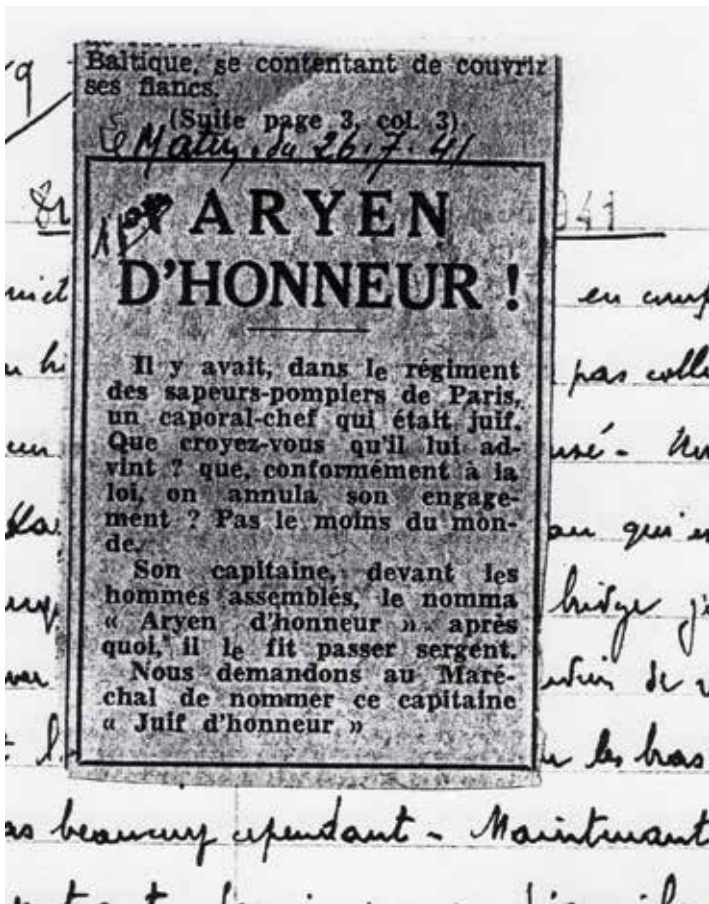 Baltique, se contentant de couvrir
ses flancs.
(Suite page 3, col. 3)
Le Matin. du 26.7.41
ARYEN
D'HONNEUR !
Il y avait, dans le régiment
des sapeurs-pompiers de Paris,
un caporal-chef qui était juif.
Que croyez-vous qu'il lui ad-
vint ? que, conformément à la
loi, on annula son engage-
ment ? Pas le moins du mon-
de.
Son capitaine, devant les
hommes assemblés, le nomma
« Aryen d'honneur » après
quoi, il le fit passer sergent.
Nous demandons au Maré-
chal de nommer ce capitaine
« Juif d'honneur »
en
pas
qui
bridge
de
les bras
beaucoup cependant - Maintenant